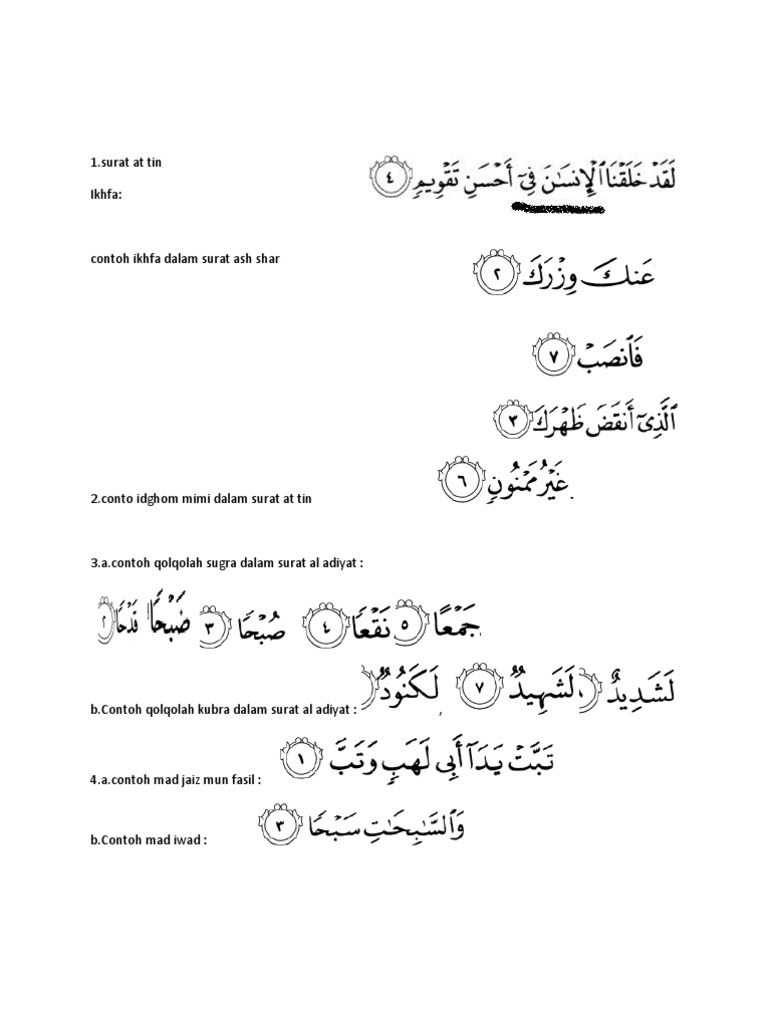 1.surat at tin
لَقَدْ خَلَقْنَا ٱلْإِنسَٰنَ فِىٓ أَحْسَنِ تَقْوِيمٍ ٤
Ikhfa:
contoh ikhfa dalam surat ash shar
عَنكَ وِزْرَكَ ٢
فَٱنصَبْ ٧
ٱلَّذِىٓ أَنقَضَ ظَهْرَكَ ٣
2.conto idghom mimi dalam surat at tin
غَيْرُ مَمْنُونٍ ٦
3.a.contoh qolqolah sugra dalam surat al adiyat :
جَمْعًا ٥ نَقْعًا ٤ صُبْحًا ٣ ضَبْحًا قَدْحًا ٢
b.Contoh qolqolah kubra dalam surat al adiyat :
لَشَدِيدٌ لَشَهِيدٌ ٧ لَكَنُودٌ
4.a.contoh mad jaiz mun fasil :
تَبَّتْ يَدَآ أَبِى لَهَبٍ وَتَبَّ ١
b.Contoh mad iwad :
وَٱلسَّٰبِحَٰتِ سَبْحًا ٣